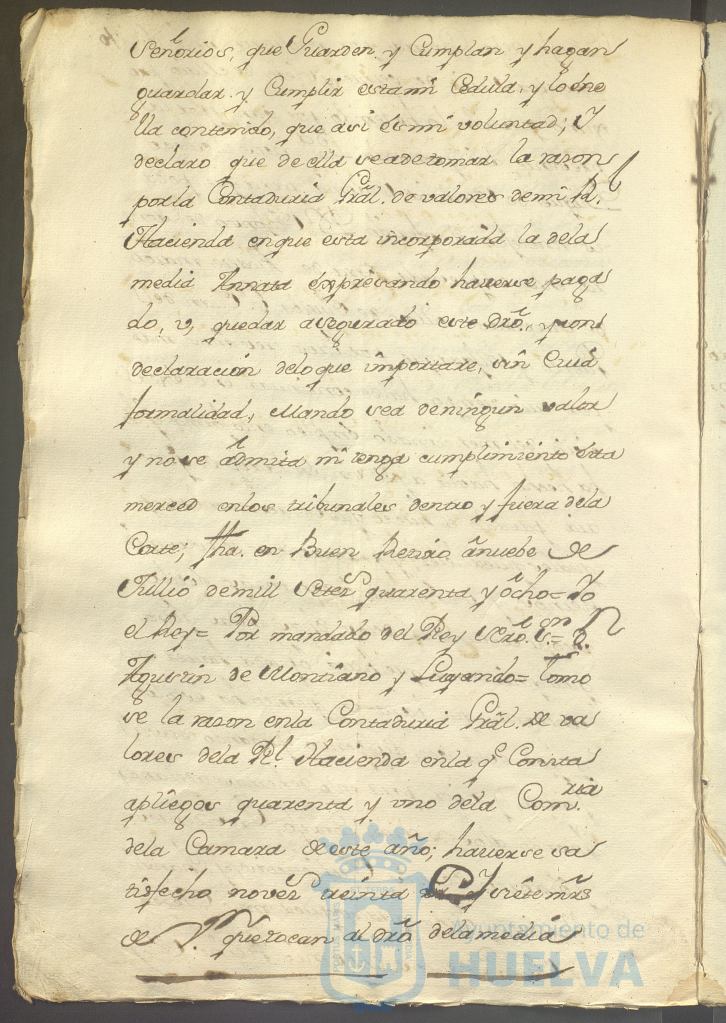 Señorios, que Guarden, y Cumplan y hagan
guardar, y Cumplir esta mi Cedula, y lo en e
lla contenido, que asi es mi voluntad; Y
declaro que de ella se ade tomar la razon
por la Contaduria Gräl. de valores de mi Rl.
Hacienda en que esta incorporada la dela
media Annata expresando haverse paga
do, v, quedar asegurado este Dro., y con
declaracion delo que importare, sin Cuia
formalidad, Mando sea de ningun valor
y no se admita ni tenga cumplimiento esta
merced en los tribunales dentro y fuera dela
Corte; fha. en Buen Retiro a nuebe de
Jullio de mill Setez. quarenta y ocho= Yo
el Rey= Por mandado del Rey nro. Sr.= Dn.
Agustin de Montiano y Luyando= tomo
se la razon en la Contaduria Gräl. de va
lores dela Rl. Hacienda en la q.e Consta
a pliegos quarenta y uno dela Com.ria
dela Camara de este año; haverse sa
tisfecho novez. treinta y siete mrs
de Vn. que tocan al dro. dela media
Ayuntamiento de
HUELVA